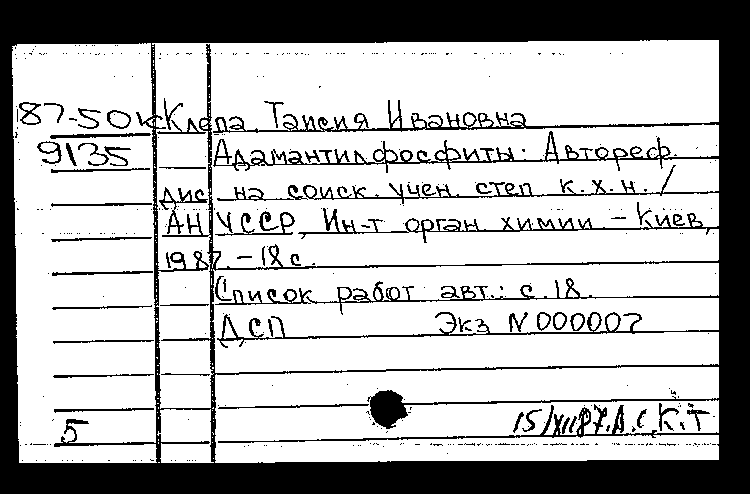 87-50к Клепа Таисия Ивановна
9135 Адамантилфосфиты: Автореф.
дис. на соиск. учен. степ к.х.н. /
АН УССР, Ин-т орган. химии. - Киев,
1987. - 18 с.
Список работ авт.: с. 18.
ДСП Экз N 000007
5 15/XII87. А.С. К.Т